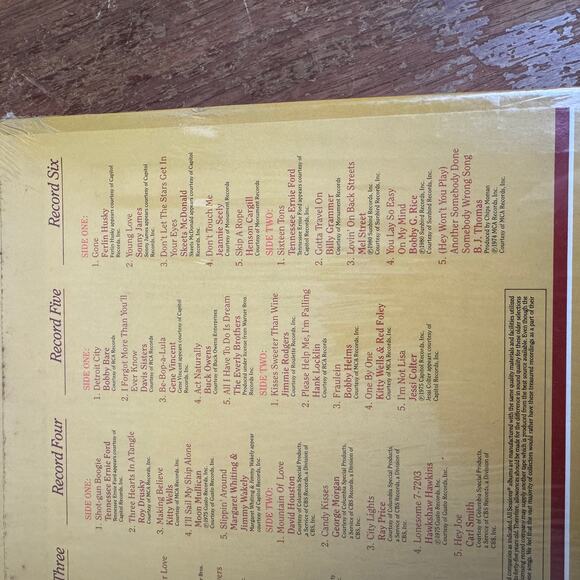 Three
r Love
pers
Record Four
SIDE ONE:
1. Shot-gun Boogie
Tennessee Ernie Ford
Tennessee Ernie Ford appears courtesy of
Capitol Records, Inc.
2. Three Hearts In A Tangle
Roy Drusky
Courtesy of MCA Records, Inc.
3. Making Believe
Kitty Wells
Courtesy of MCA Records, Inc.
4. I'll Sail My Ship Alone
Moon Mullican
℗1975 Gusto Records, Inc.
Courtesy of Gusto Records, Inc.
5. Slippin' Around
Margaret Whiting &
Jimmy Wakely
Margaret Whiting & Jimmy Wakely appear
courtesy of Capitol Records, Inc.
SIDE TWO:
1. Mountain Of Love
David Houston
Courtesy of Columbia Special Products,
a Service of CBS Records, a Division of
CBS, Inc.
2. Candy Kisses
George Morgan
Courtesy of Columbia Special Products,
a Service of CBS Records, a Division of
CBS, Inc.
3. City Lights
Ray Price
Courtesy of Columbia Special Products,
a Service of CBS Records, a Division of
CBS, Inc.
4. Lonesome 7-7203
Hawkshaw Hawkins
℗1975 Gusto Records, Inc.
Courtesy of Gusto Records, Inc.
5. Hey Joe
Carl Smith
Courtesy of Columbia Special Products,
a Service of CBS Records, a Division of
CBS, Inc.
Record Five
SIDE ONE:
1. Detroit City
Bobby Bare
Courtesy of RCA Records
2. I Forgot More Than You'll
Ever Know
Davis Sisters
Courtesy of RCA Records
3. Be-Bop-a-Lula
Gene Vincent
Gene Vincent appears courtesy of Capitol
Records, Inc.
4. Act Naturally
Buck Owens
Courtesy of Buck Owens Enterprises
5. All I Have To Do Is Dream
The Everly Brothers
Produced under license from Warner Bros.
SIDE TWO:
1. Kisses Sweeter Than Wine
Jimmie Rodgers
Courtesy of Roulette Records, Inc.
2. Please Help Me, I'm Falling
Hank Locklin
Courtesy of RCA Records
3. Fraulein
Bobby Helms
Courtesy of MCA Records, Inc.
4. One By One
Kitty Wells & Red Foley
Courtesy of MCA Records, Inc.
5. I'm Not Lisa
Jessi Colter
℗1975 Capitol Records, Inc.
Jessi Colter appears courtesy of Capitol
Records, Inc.
Record Six
SIDE ONE:
1. Gone
Ferlin Husky
Ferlin Husky appears courtesy of Capitol
Records, Inc.
2. Young Love
Sonny James
Sonny James appears courtesy of Capitol
Records, Inc.
3. Don't Let The Stars Get In
Your Eyes
Skeets McDonald
Skeets McDonald appears courtesy of Capitol
Records, Inc.
4. Don't Touch Me
Jeannie Seely
Courtesy of Monument Records
5. Skip A Rope
Henson Cargill
Courtesy of Monument Records
SIDE TWO:
1. Sixteen Tons
Tennessee Ernie Ford
Tennessee Ernie Ford appears courtesy of
Capitol Records, Inc.
2. Gotta Travel On
Billy Grammer
Courtesy of Monument Records
3. Lovin' On Back Streets
Mel Street
℗1980 Sunbird Records, Inc.
Courtesy of Sunbird Records, Inc.
4. You Lay So Easy
On My Mind
Bobby G. Rice
℗1980 Sunbird Records, Inc.
Courtesy of Sunbird Records, Inc.
5. (Hey Won't You Play)
Another Somebody Done
Somebody Wrong Song
B.J. Thomas
Produced by Chips Moman
℗1974 MCA Records, Inc.
Courtesy of MCA Records, Inc.